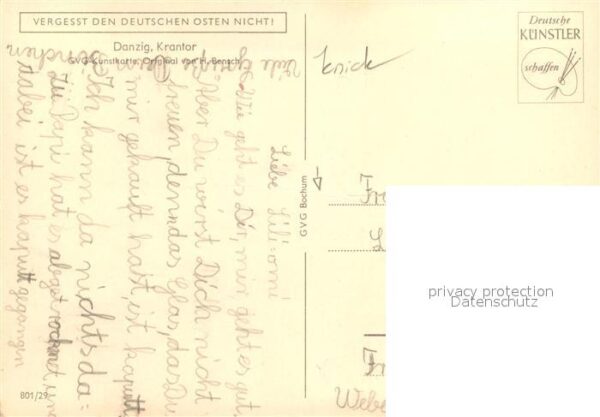 VERGESST DEN DEUTSCHEN OSTEN NICHT!
Danzig, Krantor
GVG-Kunstkarte, Original von H. Bensch
801/29
GVG Bochum
Deutsche
KÜNSTLER
schaffen
knick
Liebe Lili-omi
Wie geht es Dir, mir geht es gut.
Aber Du wirst Dich nicht
freuen, denn das Glas, das Du
mir gekauft hast, ist kaputt.
Ich kann da nichts da=
zu Papi hat es abgetrocknet, und
dabei ist es kaputt gegangen
Viele
Fr
L
Webe
privacy protection
Datenschutz